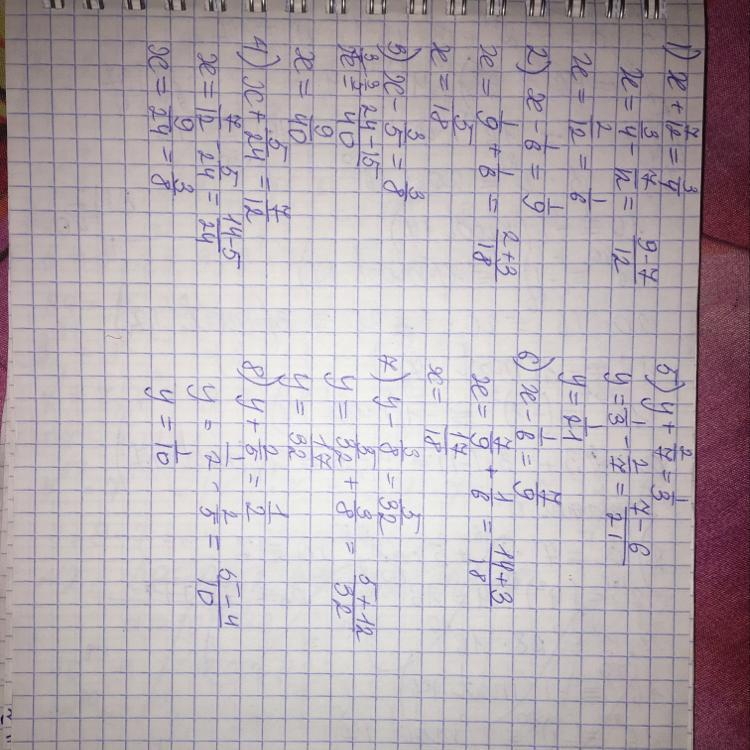 1) x + 7/12 = 3/4
x = 3/4 - 7/12 = 9-7/12
x = 2/12 = 1/6
2) x - 1/6 = 1/9
x = 1/9 + 1/6 = 2+3/18
x = 5/18
3) x - 3/5 = 3/8
24-15/40
x = 9/40
4) x + 5/24 = 7/12
x = 7/12 - 5/24 = 14-5/24
x = 9/24 = 3/8
5) y + 2/7 = 1/3
y = 1/3 - 2/7 = 7-6/21
y = 1/21
6) x - 1/6 = 7/9
x = 7/9 + 1/6 = 14+3/18
x = 17/18
7) y - 3/8 = 5/32
y = 5/32 + 3/8 = 5+12/32
y = 17/32
8) y + 2/5 = 1/2
y = 1/2 - 2/5 = 5-4/10
y = 1/10